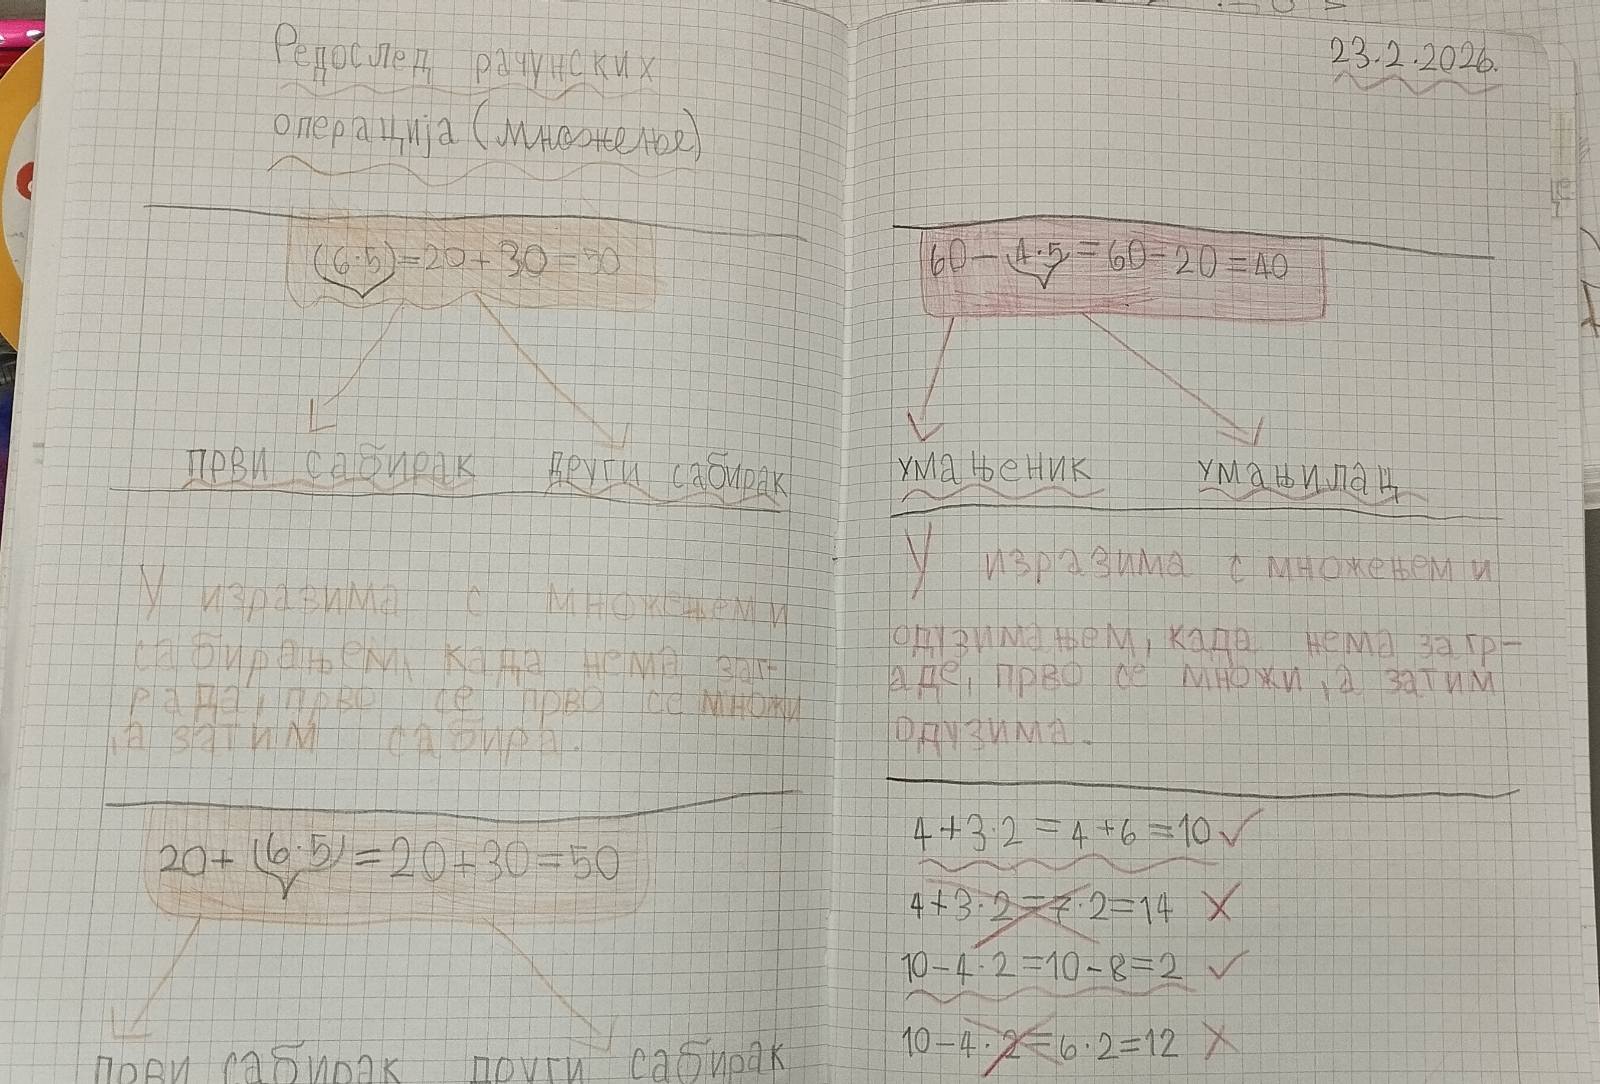 Редослед рачунских
операција (множење)
(6·5)=20+30=50
први сабирак други сабирак
У изразима с множењем и
сабирањем, када нема заг
рада, прво се прво се множи
,а затим сабира.
20+(6·5)=20+30=50
први сабирак други сабирак
23.2.2026.
60-4·5=60-20=40
умањеник умањилац
У изразима с множењем и
одузимањем, када нема загр-
аде, прво се множи, а затим
одузима.
4+3·2=4+6=10✓
4+3·2=7·2=14 X
10-4·2=10-8=2 ✓
10-4·2=6·2=12 X